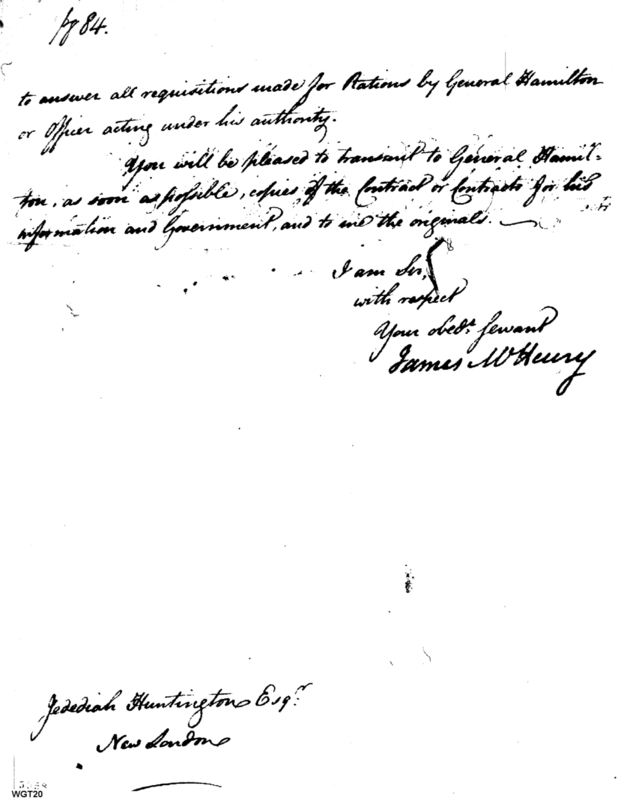 pg 84.
to answer all requisitions made for Rations by General Hamilton
or Officer acting under his authority.
You will be pleased to transmit to General Hamil-
ton, as soon as possible, copies of the Contract or Contracts for his
information and Government, and to me the originals.
I am Sir,
with respect
Your obedt. Servant
James McHenry
Jedediah Huntington Esqr.
New London
WGT20